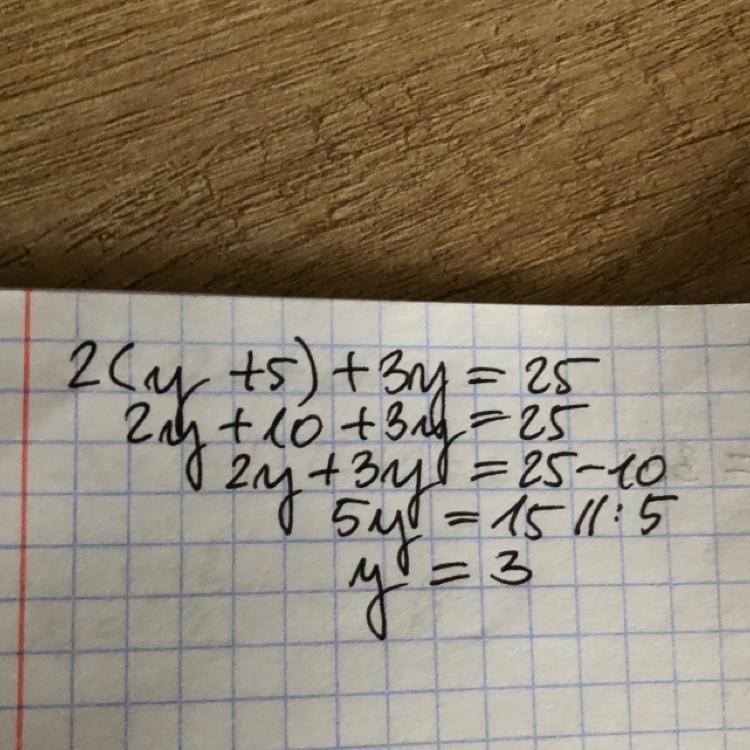 2(y +5) + 3y = 25
2y + 10 + 3y = 25
2y + 3y = 25 - 10
5y = 15 //: 5
y = 3